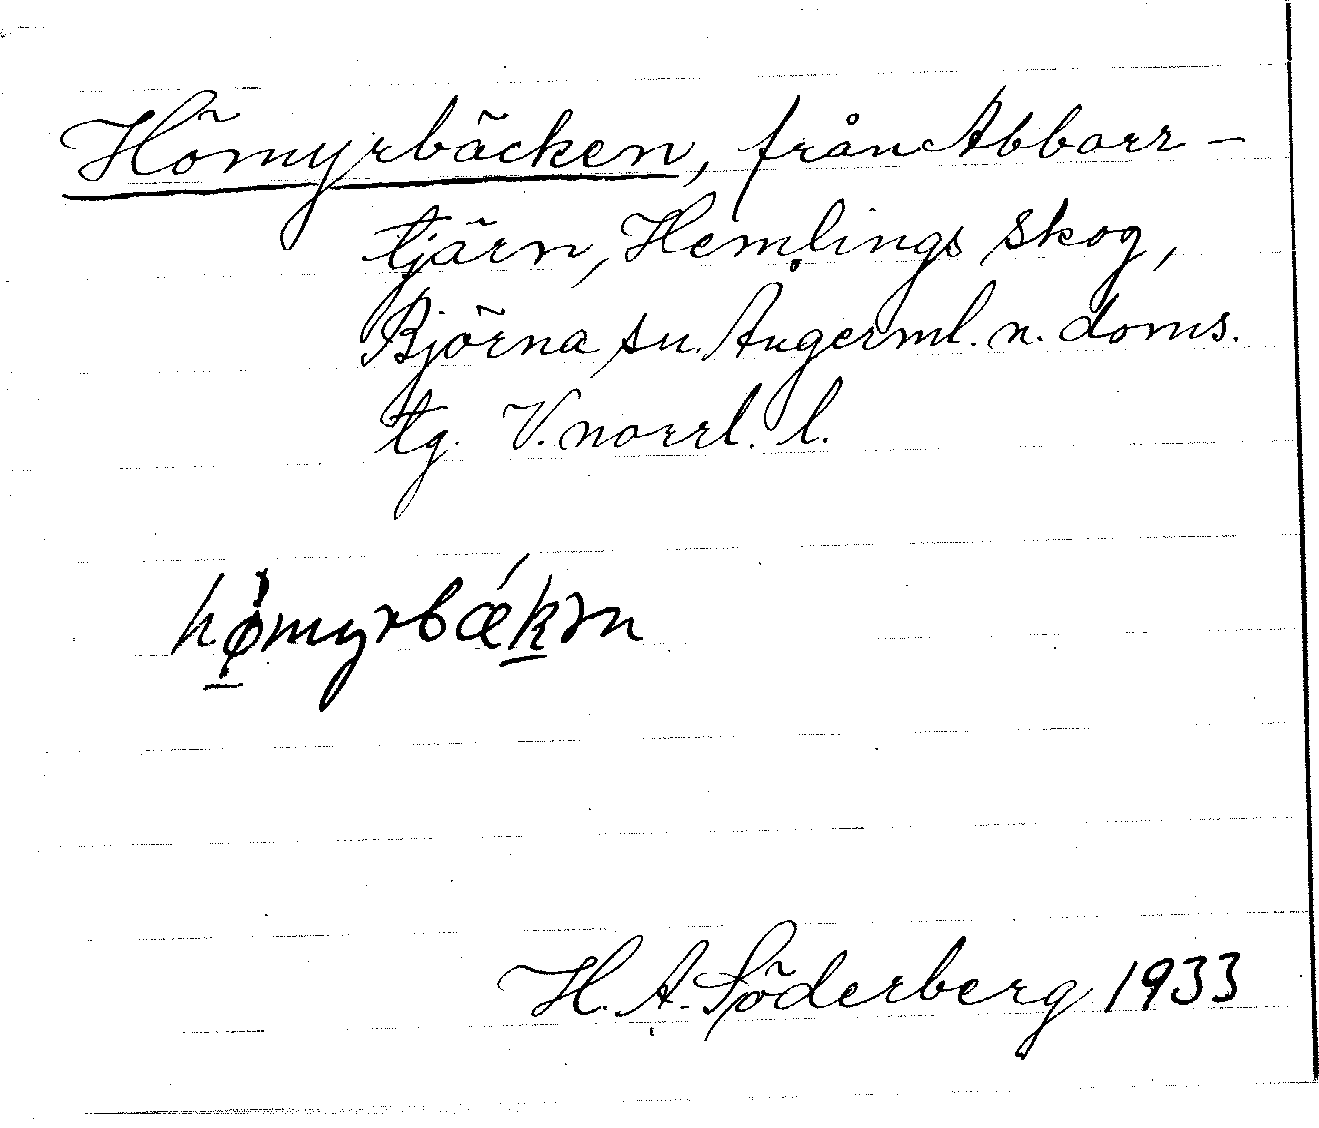 Hömyrbäcken, från Abborr-
tjärn, Hemlings skog,
Björna sn. Ångerml. n. doms.
tg. V. norrl. l.
hø̀myrbǽkən
H. A. Söderberg 1933